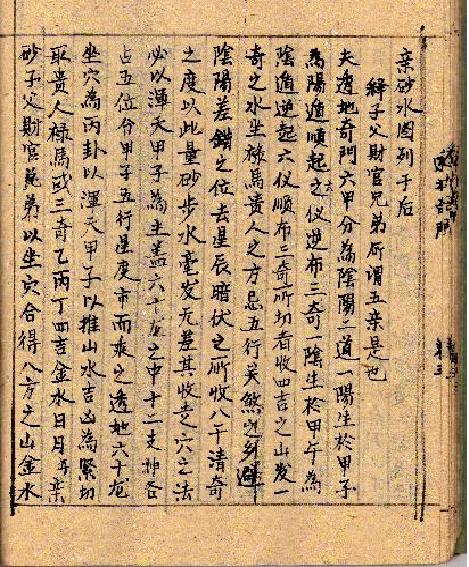 亲砂水图列于后
释子父财官兄弟所谓五亲是也
夫透地奇门六甲分为陰陽二道一陽生於甲子
為陽遁順起六仪逆布三奇一陰生於甲午為
陰遁逆起六仪順布三奇所切者收四吉之山发一
奇之水坐禄馬貴人之方忌五行关煞之
陰陽差錯之位去星辰暗伏之所收八干清奇
之度以此量砂步水毫发无差其收走穴之法
必以渾天甲子為主盖六十龙之中十二支神各
占五位分甲子五行星度市而乘之透地六十龙
坐穴為内卦以渾天甲子以推山水吉凶為緊切
取貴人禄馬或三奇乙丙丁四吉金水日月五亲
砂子父财官兄弟以坐穴合得八方之山金水